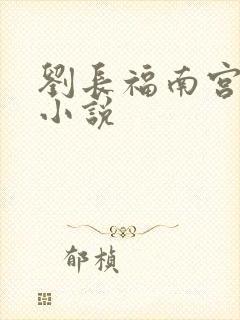 劉長福南宮
小說
郁楨